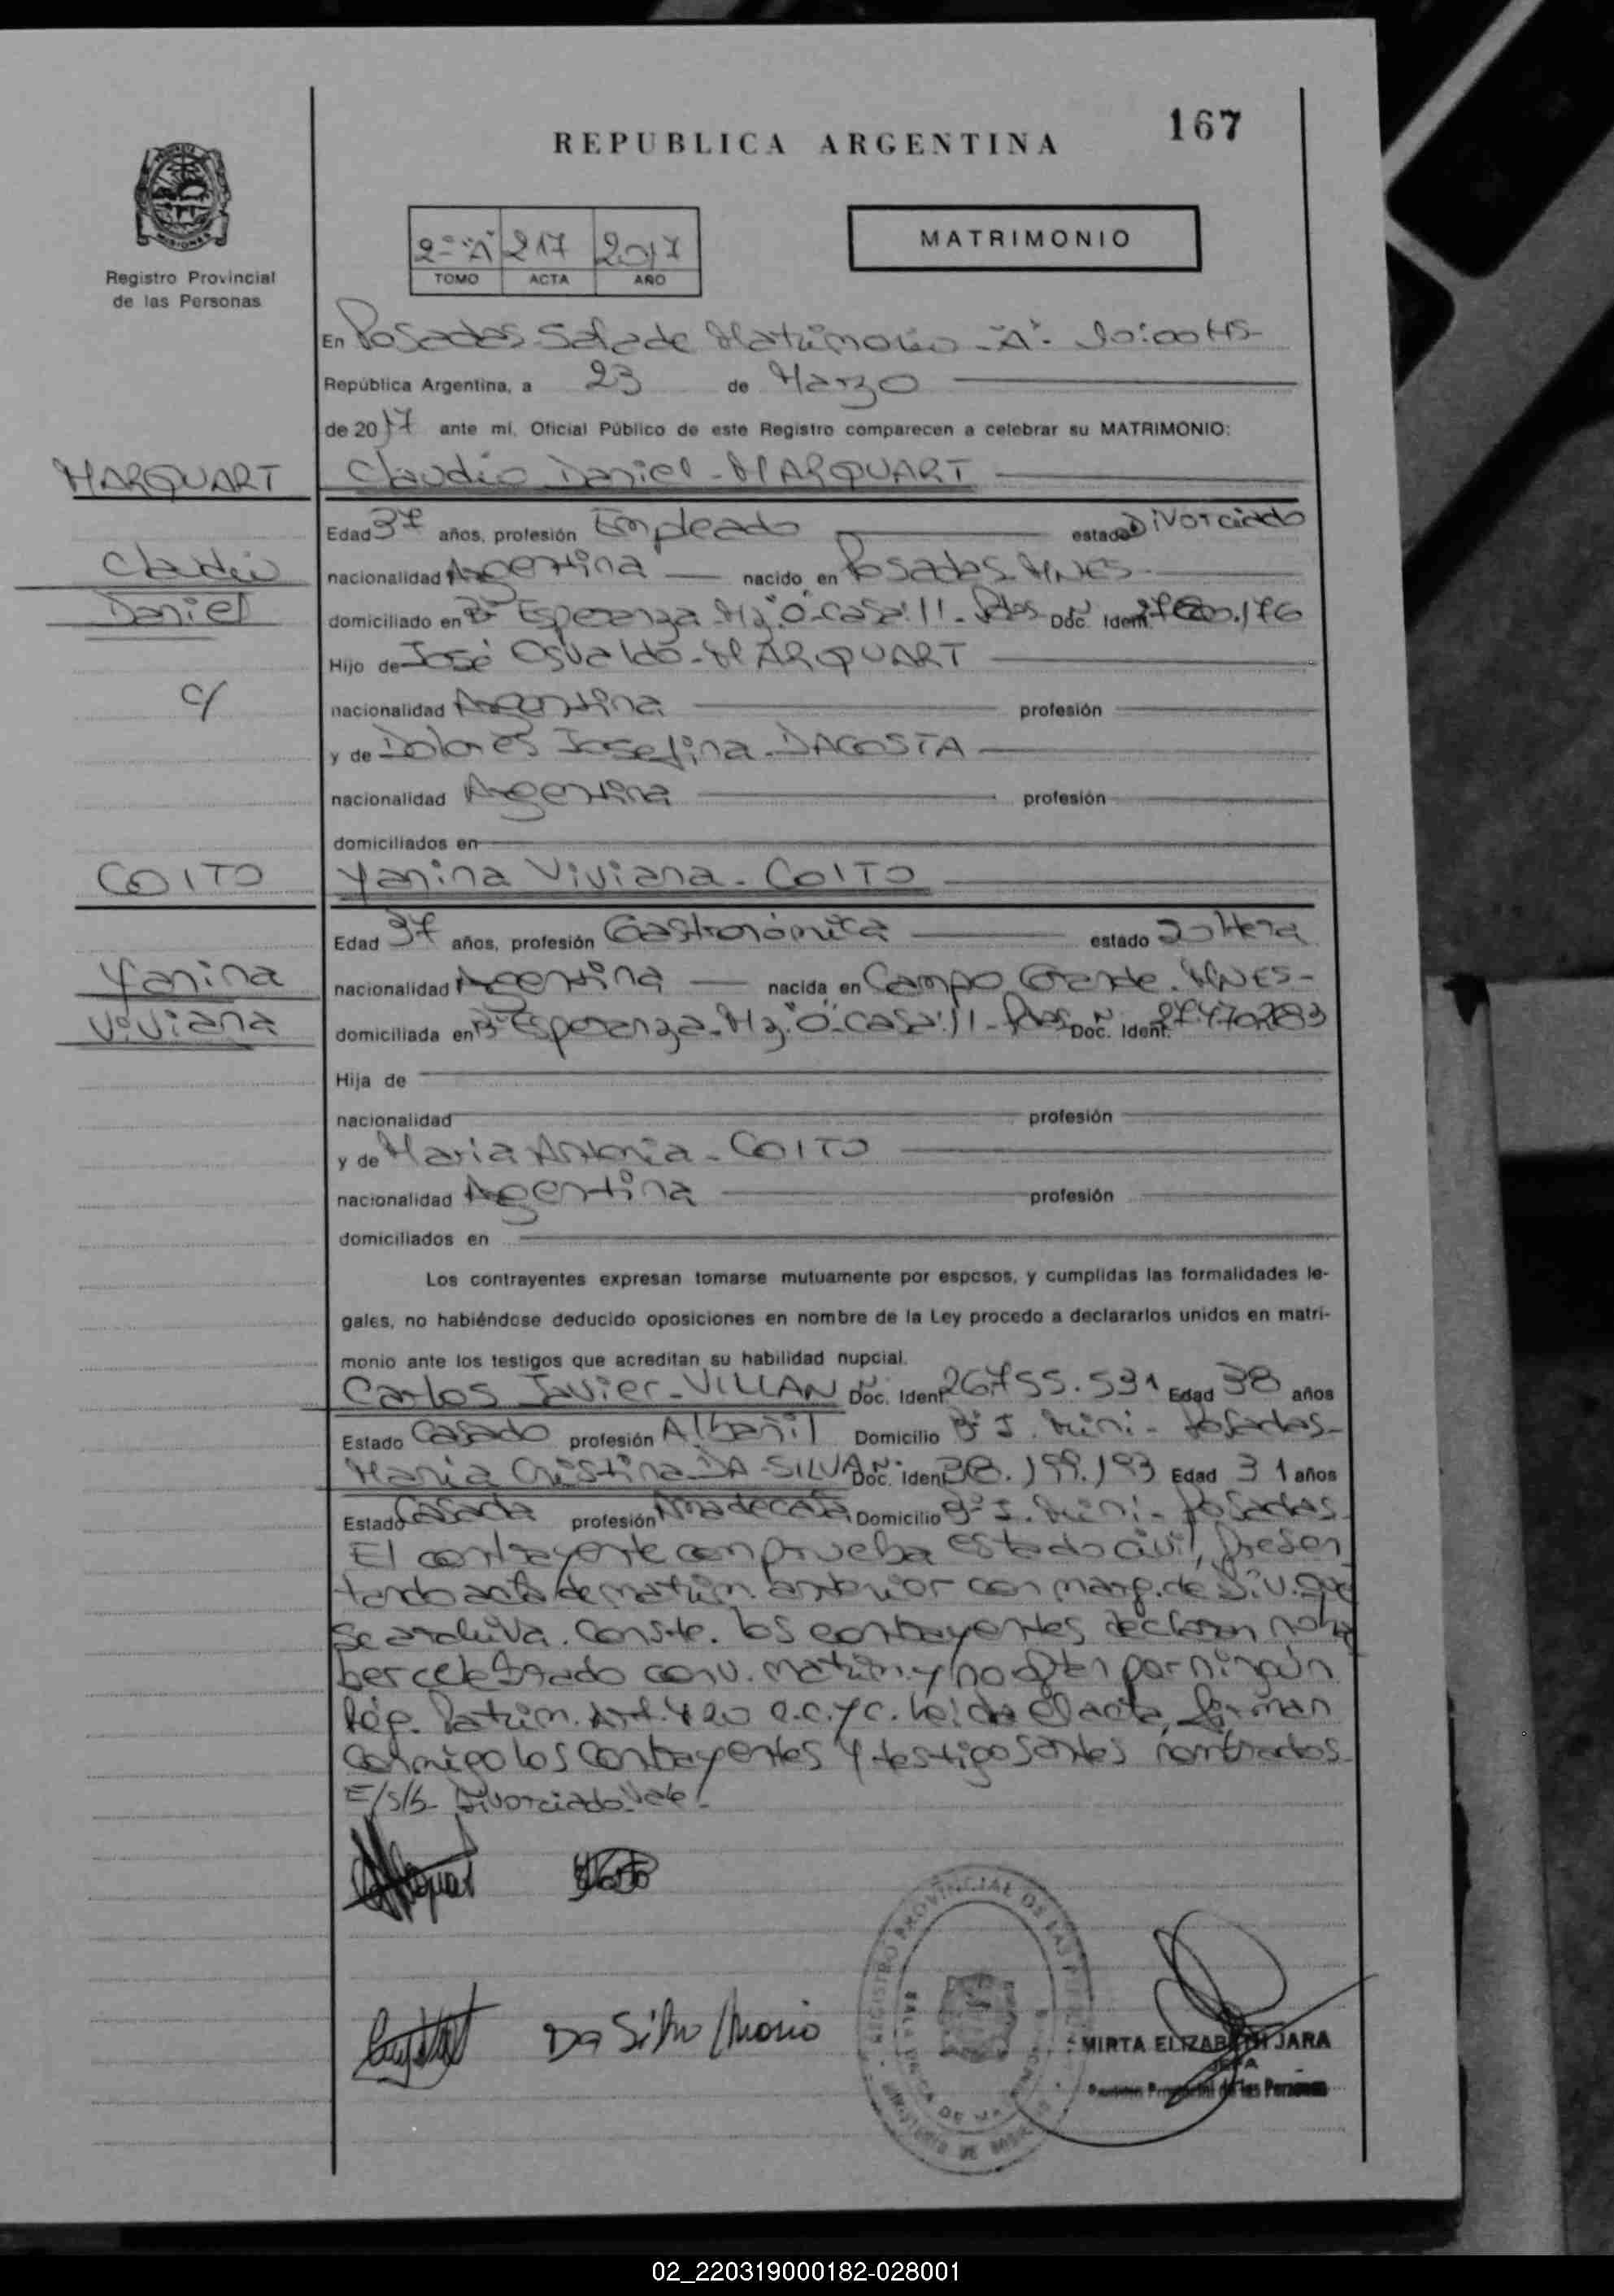 167
REPUBLICA ARGENTINA
MISIONES
Registro Provincial
de las Personas
2º "A" 217 2017
TOMO ACTA AÑO
MATRIMONIO
En Posadas Sala de Matrimonio - "A" - 10:00 HS-
República Argentina, a 23 de Marzo
de 2017 ante mí, Oficial Público de este Registro comparecen a celebrar su MATRIMONIO:
MARQUART Claudio Daniel - MARQUART
Edad 37 años, profesión Empleado estado Divorciado
Claudio
nacionalidad Argentina nacido en Posadas MNES-
Daniel
domiciliado en Bº Esperanza - Mz "O" casa: 11 - Pdas Doc. Ident.
Hijo de José Osvaldo - MARQUART
c/
nacionalidad Argentina profesión
y de Dolores Josefina DACOSTA
nacionalidad Argentina profesión
domiciliados en
COITO Yanina Viviana - COITO
Edad 37 años, profesión Gastronómica estado Soltera
Yanina
nacionalidad Argentina nacida en Campo Grande - MNES-
Viviana
domiciliada en Bº Esperanza - Mz "O" casa: 11 - Pdas Doc. Ident. 27.470.283
Hija de
nacionalidad profesión
y de Maria Antonia - COITO
nacionalidad Argentina profesión
domiciliados en
Los contrayentes expresan tomarse mutuamente por esposos, y cumplidas las formalidades le-
gales, no habiéndose deducido oposiciones en nombre de la Ley procedo a declararlos unidos en matri-
monio ante los testigos que acreditan su habilidad nupcial.
Carlos Javier - VILLAN Doc. Ident. 26.755.531 Edad 38 años
Estado Casado profesión Albañil Domicilio Bº I. Mini - Posadas-
Maria Cristina DA SILVA Doc. Ident. 38.199.193 Edad 31 años
Estado Casada profesión Ama de casa Domicilio Bº I. Mini - Posadas
El contrayente comprueba estado civil, Presen
tando acta de matrim. anterior con marg. de Div. que
se archiva. Conste. los contrayentes declaran no ha
ber celebrado conv. matrim. y no optan por ningún
Rég. Patrim. Art. 420 C.C.yC. Leída el acta, firman
conmigo los contrayentes y testigos antes nombrados.
E/s/b Divorciado Vale.
Da Silva Maria
REGISTRO PROVINCIAL DE LAS
MIRTA ELIZABETH JARA
JEFA
Provincial de las Personas
02_220319000182-028001